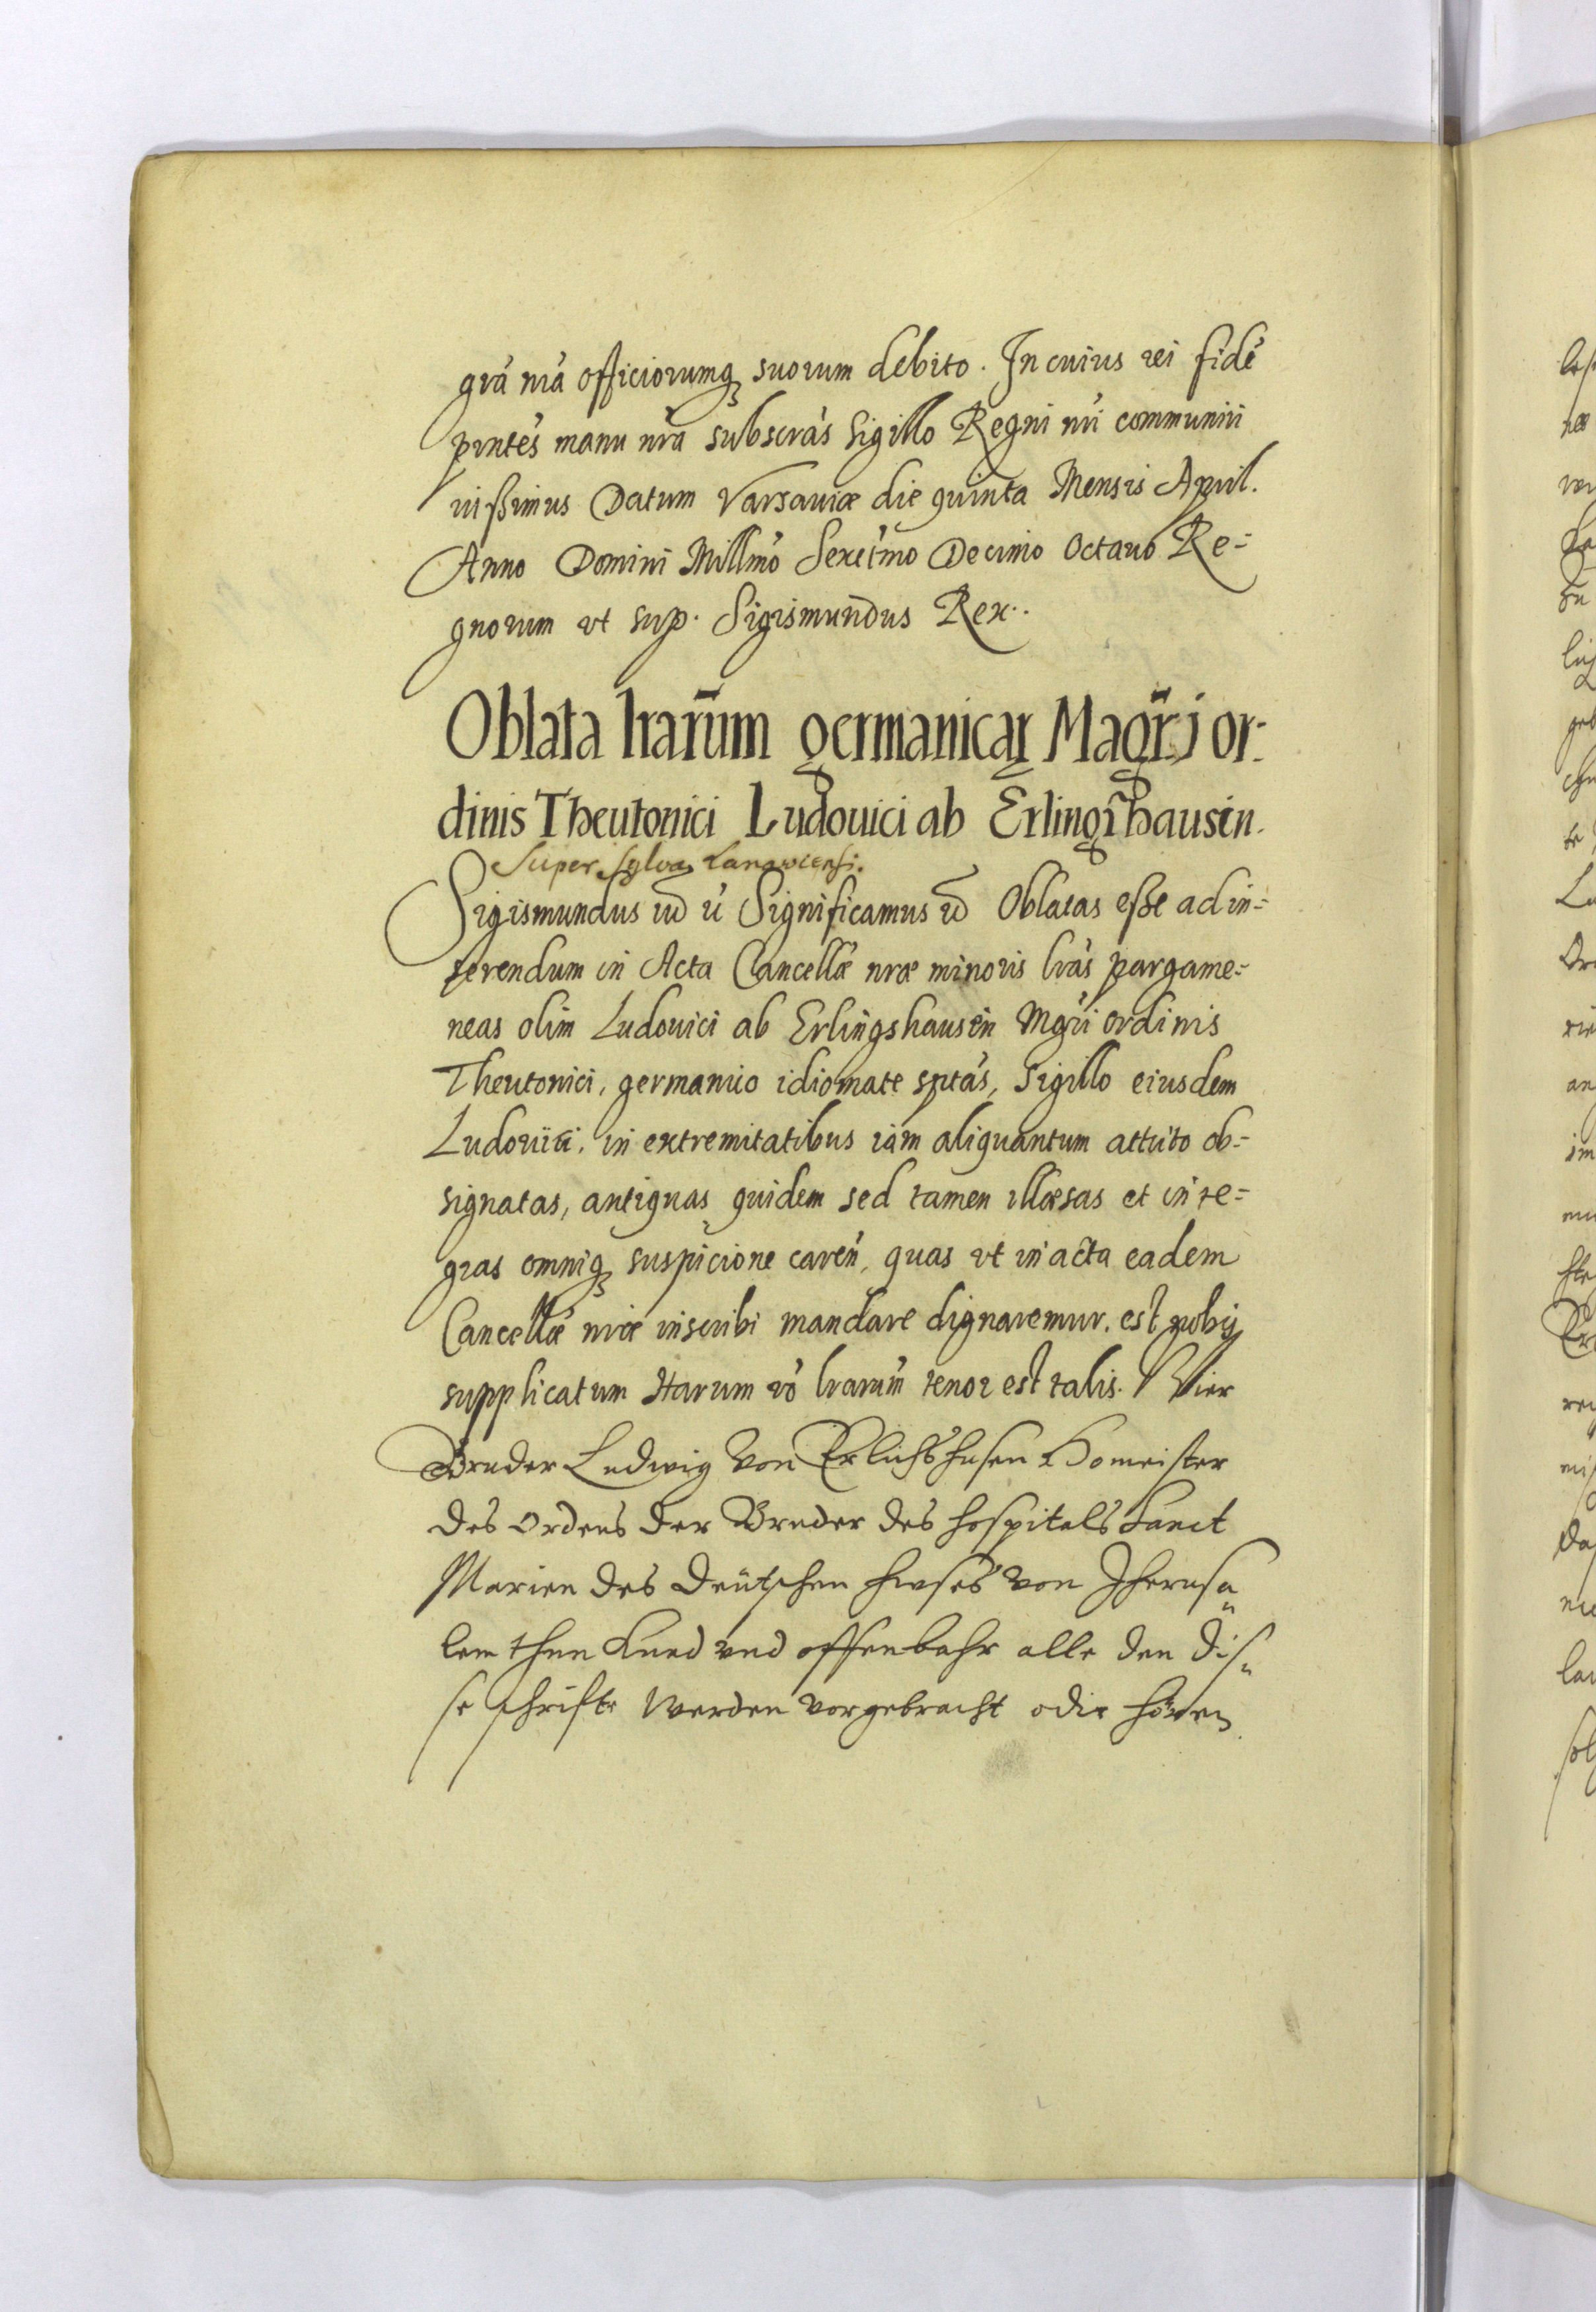 grá nrá officiorumq suorum debito. In cuius rei fidé
pnntés manu nrá subscrás Sigillo Regni nri communiri
iussimus Datum Varsaviæ die quinta Mensis April.
Anno Domini Millmó Sexctmo Decimo Octavo Re=
gnorum vt sup. Sigismundus Rex..
Oblata lrarum germanicar Magri or:
dinis Theutonici Ludouici ab Erlingshausen.
Super sylva
Sigismundus Significamus Oblatas esse ad in=
serendum in Acta Cancellæ nræ minoris lrás pargame=
neas olim Ludouici ab Erlingshausen Mgri ordinis
Theutonici, germanico idiomate sptás, Sigillo eiusdem
Ludouici, in extremitatibus iam aliquantum attrito ob=
signatas, antiquas quidem sed tamen illæsas et inte=
gras omniq suspicione caren, quas vt in acta eadem
Cancellæ nræ inscribi mandare dignaremur, est nobis
supplicatum Harum vó lrarum tenor est talis. Wier
Bruder Ludwig von Erlichshusen Homeister
des Ordens der Bruder des Hospitals Sanct
Marien des Deutschen Hwses von Jherusa
lem thun Kund vnd offenbahr alle den dis
se schrifte werden vorgebracht odir hören